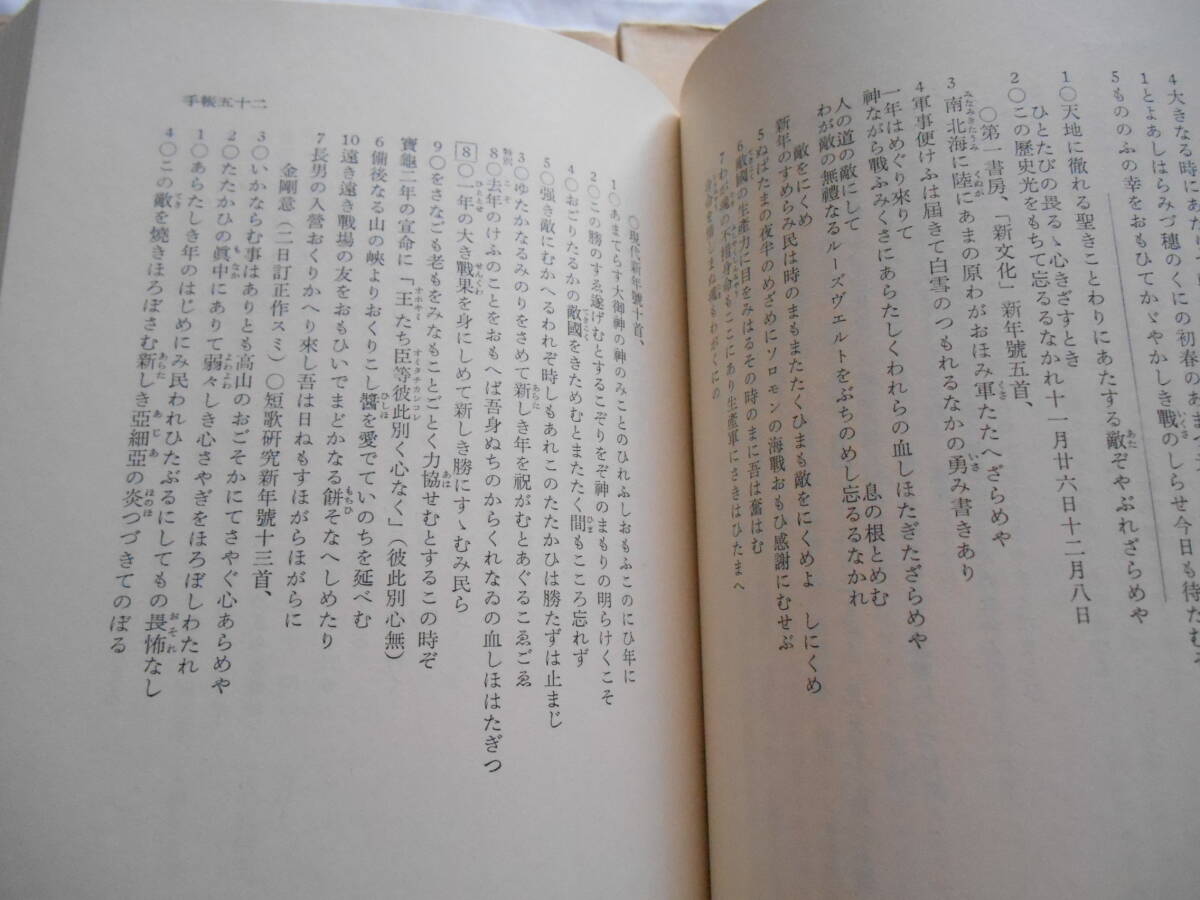 4 大きなる時にあた
1 とよあしはらみづ穂のくにの初春のあ
5 もののふの幸をおもひてかゞやかしき戰のしらせ今日も待た
1○天地に徹れる聖きことわりにあたする敵ぞやぶれざらめや
2○この歴史光をもちて忘るるなかれ十一月廿六日十二月八日
ひとたびの畏るゝ心きざすとき
○第一書房、「新文化」新年號五首、
3 南北海に陸にあまの原わがおほみ軍たたへざらめや
4 軍事便けふは届きて白雪のつもれるなかの勇み書きあり
一年はめぐり來りて
神ながら戰ふみくさにあらたしくわれらの血しほたぎたざらめや
わが敵の無禮なるルーズヴエルトをぶちのめし忘るるなかれ
人の道の敵にして
息の根とめむ
敵をにくめ
新年のすめらみ民は時のまもまたたくひまも敵をにくめよ しにくめ
5 ぬばたまの夜半のめざめにソロモンの海戰おもひ感謝にむせぶ
6 敵國の生產力に目をみはるその時のまに吾は奮はむ
7 わが魂の不惜身命もここにあり生產軍にさきはひたまへ
身命を惜しまぬ魂もわがくにの
手帳五十二
○現代新年號十首、
1○あまてらす大御神の神のみことのひれふしおもふこのにひ年に
2○この勝のすゑ遂げむとするこぞりをぞ神のまもりの明らけくこそ
4○おごりたるかの敵國をきためむとまたたく間もこころ忘れず
5○强き敵にむかへるわれぞ時しもあれこのたたかひは勝たずは止まじ
3○ゆたかなるみのりをさめて新しき年を祝がむとあぐるこゑごゑ
特別
8○去年のけふのことをおもへば吾身ぬちのからくれなゐの血しほはたぎつ
8○一年の大き戰果を身にしめて新しき勝にすゝむみ民ら
9○をさなごも老もをみなもことごとく力協せむとするこの時ぞ
寶龜二年の宣命に「王たち臣等彼此別く心なく」(彼此別心無)
6 備後なる山の峽よりおくりこし醬を愛でていのちを延べむ
10 遠き遠き戰場の友をおもひいでまどかなる餅そなへしめたり
7 長男の入營おくりかへり來し吾は日ねもすほがらほがらに
金剛意(二日訂正作スミ)○短歌硏究新年號十三首、
3○いかならむ事はありとも高山のおごそかにてさやぐ心あらめや
2○たたかひの眞中にありて弱々しき心さやぎをほろぼしわたれ
1○あらたしき年のはじめにみ民われひたぶるにしてもの畏怖なし
4○この敵を燒きほろぼさむ新しき亞細亞の炎つづきてのぼる